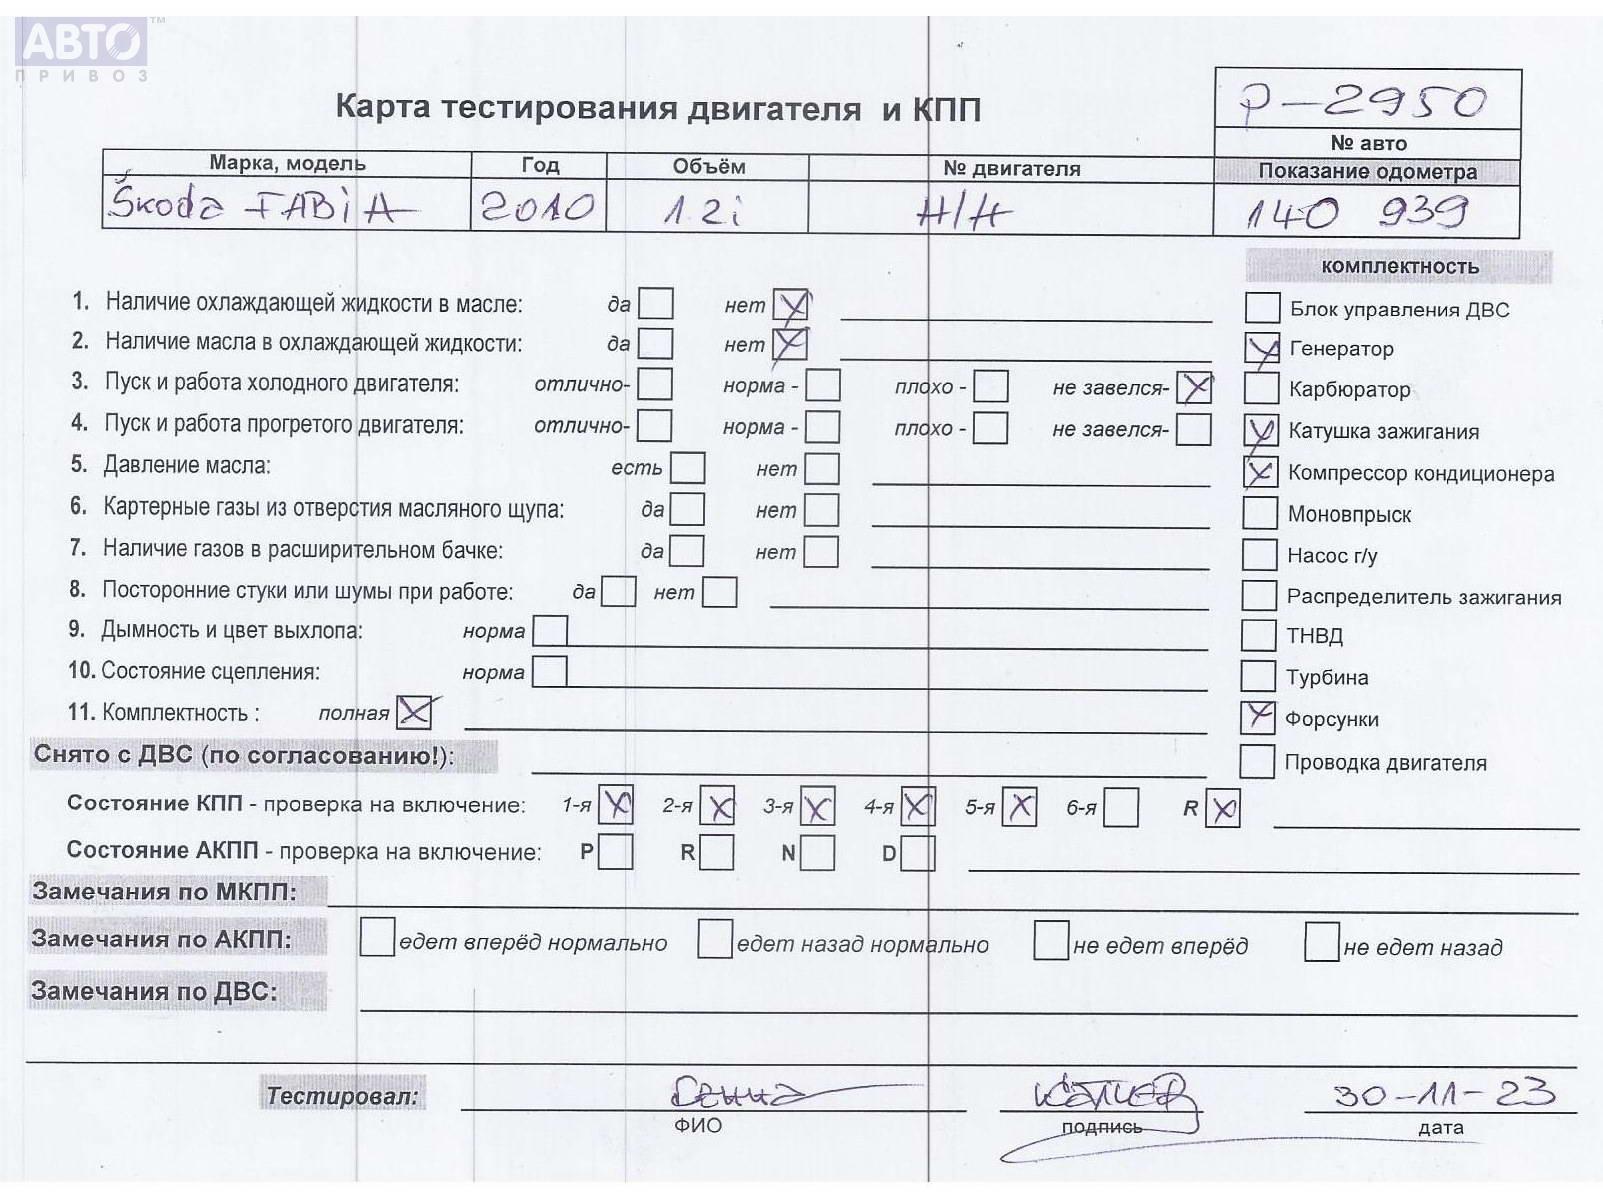 АВТО™
ПРИВОЗ
Карта тестирования двигателя и КПП
р-2950
№ авто
Марка, модель Год Объём № двигателя Показание одометра
Škoda FABiA 2010 1.2i Н/Н 140 939
комплектность
1. Наличие охлаждающей жидкости в масле: да нет X
Блок управления ДВС
2. Наличие масла в охлаждающей жидкости: да нет X
X Генератор
3. Пуск и работа холодного двигателя: отлично- норма - плохо - не завелся- X
Карбюратор
4. Пуск и работа прогретого двигателя: отлично- норма - плохо - не завелся-
X Катушка зажигания
5. Давление масла: есть нет
X Компрессор кондиционера
6. Картерные газы из отверстия масляного щупа: да нет
Моновпрыск
7. Наличие газов в расширительном бачке: да нет
Насос г/у
8. Посторонние стуки или шумы при работе: да нет
Распределитель зажигания
9. Дымность и цвет выхлопа: норма
ТНВД
10. Состояние сцепления: норма
Турбина
11. Комплектность : полная X
X Форсунки
Снято с ДВС (по согласованию!):
Проводка двигателя
Состояние КПП - проверка на включение: 1-я X 2-я X 3-я X 4-я X 5-я X 6-я R X
Состояние АКПП - проверка на включение: P R N D
Замечания по МКПП:
Замечания по АКПП: едет вперёд нормально едет назад нормально не едет вперёд не едет назад
Замечания по ДВС:
Тестировал: 30-11-23
ФИО подпись дата